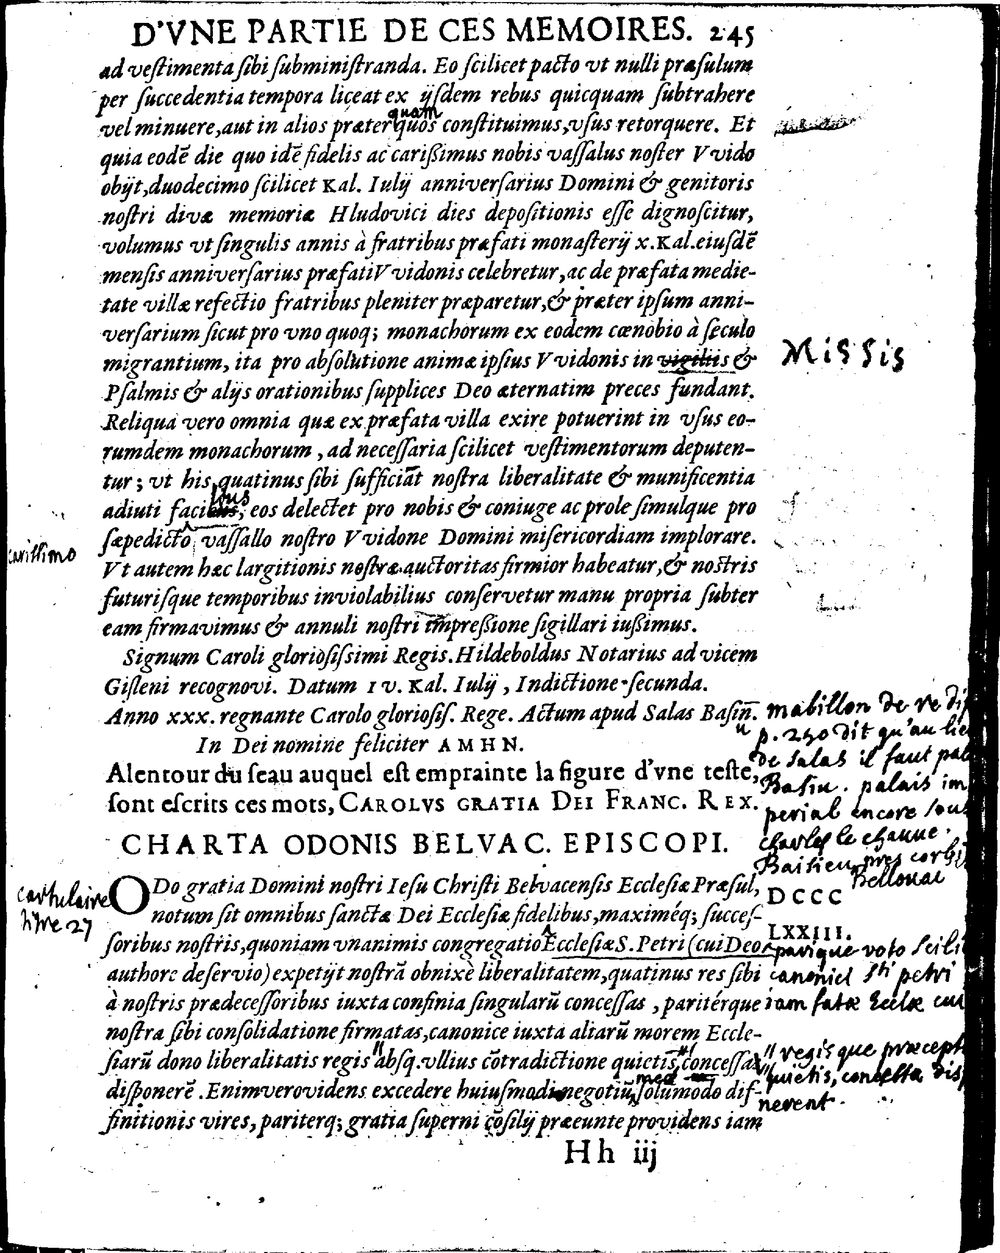 D'VNE PARTIE DE CES MEMOIRES. 245
ad vestimenta sibi subministranda. Eo scilicet pacto vt nulli præsulum
per succedentia tempora liceat ex ijsdem rebus quicquam subtrahere
quam
vel minuere, aut in alios præter quos constituimus, vsus retorquere. Et
quia eodē die quo idē fidelis ac carißimus nobis vassalus noster Vvido
obijt, duodecimo scilicet Kal. Iulij anniversarius Domini & genitoris
nostri divæ memoriæ Hludovici dies depositionis esse dignoscitur,
volumus vt singulis annis à fratribus præfati monasterij x. Kal. eiusdē
mensis anniversarius præfati Vvidonis celebretur, ac de præfata medie-
tate villæ refectio fratribus pleniter præparetur, & præter ipsum anni-
versarium sicut pro vno quoq; monachorum ex eodem cœnobio à seculo
migrantium, ita pro absolutione animæ ipsius Vvidonis in vigiliis &
Missis
Psalmis & alijs orationibus supplices Deo æternatim preces fundant.
Reliqua vero omnia quæ ex præfata villa exire potuerint in vsus eo-
rumdem monachorum, ad necessaria scilicet vestimentorum deputen-
tur; vt his quatinus sibi sufficiāt nostra liberalitate & munificentia
adiuti facibus, eos delectet pro nobis & coniuge ac prole simulque pro
carissimo
sæpedicto vassallo nostro Vvidone Domini misericordiam implorare.
Vt autem hæc largitionis nostræ auctoritas firmior habeatur, & nostris
futurisque temporibus inviolabilius conservetur manu propria subter
eam firmavimus & annuli nostri impreßione sigillari iußimus.
Signum Caroli gloriosissimi Regis. Hildeboldus Notarius ad vicem
Gisleni recognovi. Datum IV. Kal. Iulij, Indictione secunda.
Anno xxx. regnante Carolo gloriosis. Rege. Actum apud Salas Basiñ.
In Dei nomine feliciter AMHN.
Alentour du seau auquel est emprainte la figure d'vne teste,
sont escrits ces mots, CAROLVS GRATIA DEI FRANC. REX.
mabillon de re dip
p. 250 dit qu'au lieu
de salas il faut pal
Basiu. palais im
perial encore sous
charles le chauve.
Baisieu pres corbi
Bellouac
CHARTA ODONIS BELVAC. EPISCOPI.
cartulaire
titre 27
ODo gratia Domini nostri Iesu Christi Belvacensis Ecclesiæ Præsul,
DCCC
LXXIII.
notum sit omnibus sanctæ Dei Ecclesiæ fidelibus, maximéq; succes-
soribus nostris, quoniam vnanimis congregatio Ecclesiæ S. Petri (cui Deo
authore deservio) expetijt nostrā obnixè liberalitatem, quatinus res sibi
à nostris prædecessoribus iuxta confinia singularū concessas, paritérque
nostra sibi consolidatione firmatas, canonice iuxta aliarū morem Eccle-
siarū dono liberalitatis regis absq. vllius cōtradictione quietis, concessas
disponerē. Enimvero videns excedere huiusmodi negotiū, solūmodo dif-
finitionis vires, pariterq; gratia superni cōsilij præeunte providens iam
parique voto Scili
canonici Sti petri
iam fatæ Ecclæ cui
regisque præcept
quietis, concessa disp
nerent.
Hh iij